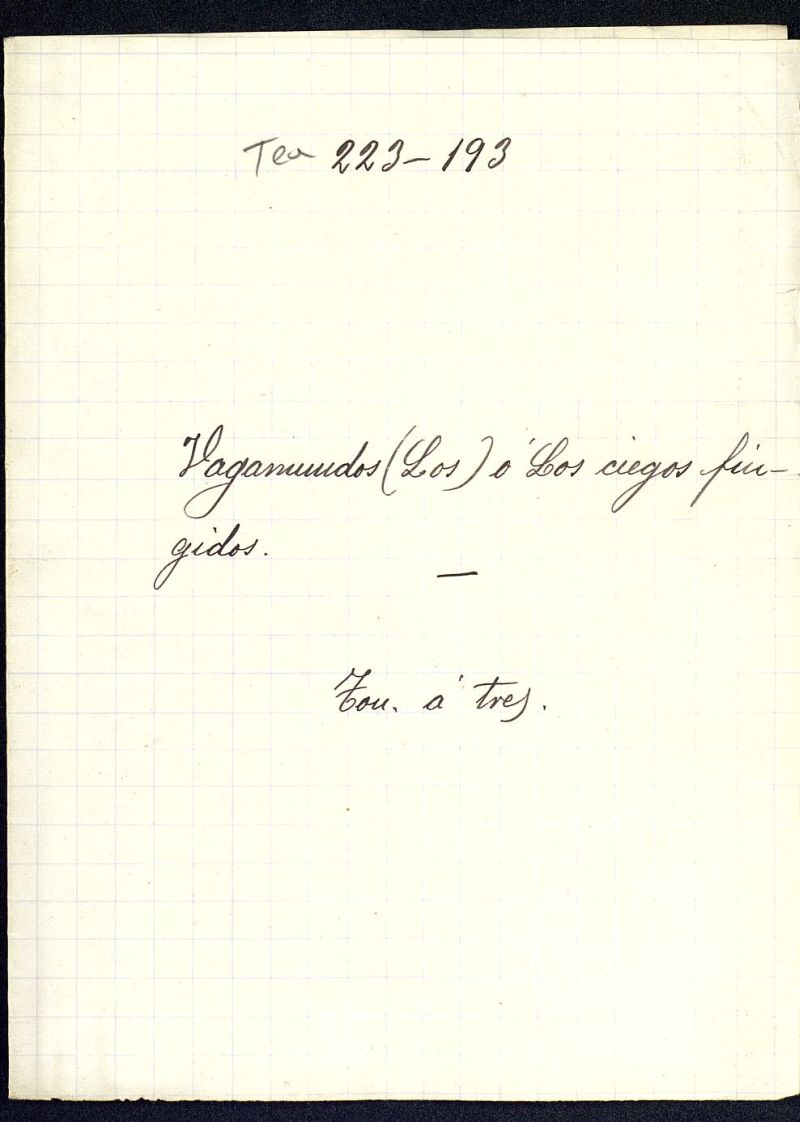 Tea 223-193
Vagamundos (Los) ó Los ciegos fin-
gidos.
—
Ton. á tres.